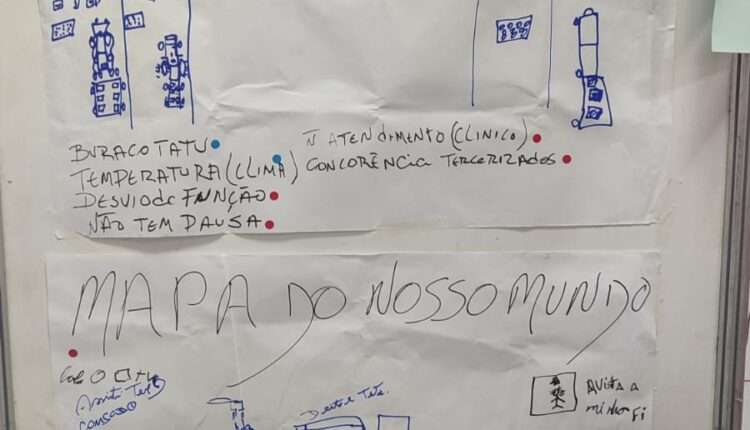 BURACO TATU
TEMPERATURA (CLIMA)
DESVIO DE FUNÇÃO
NÃO TEM PAUSA
Ñ ATENDIMENTO (CLINICO)
CONCORÊNCIA TERCERIZADOS
MAPA DO NOSSO MUNDO
cansado
AVISTA A
minha